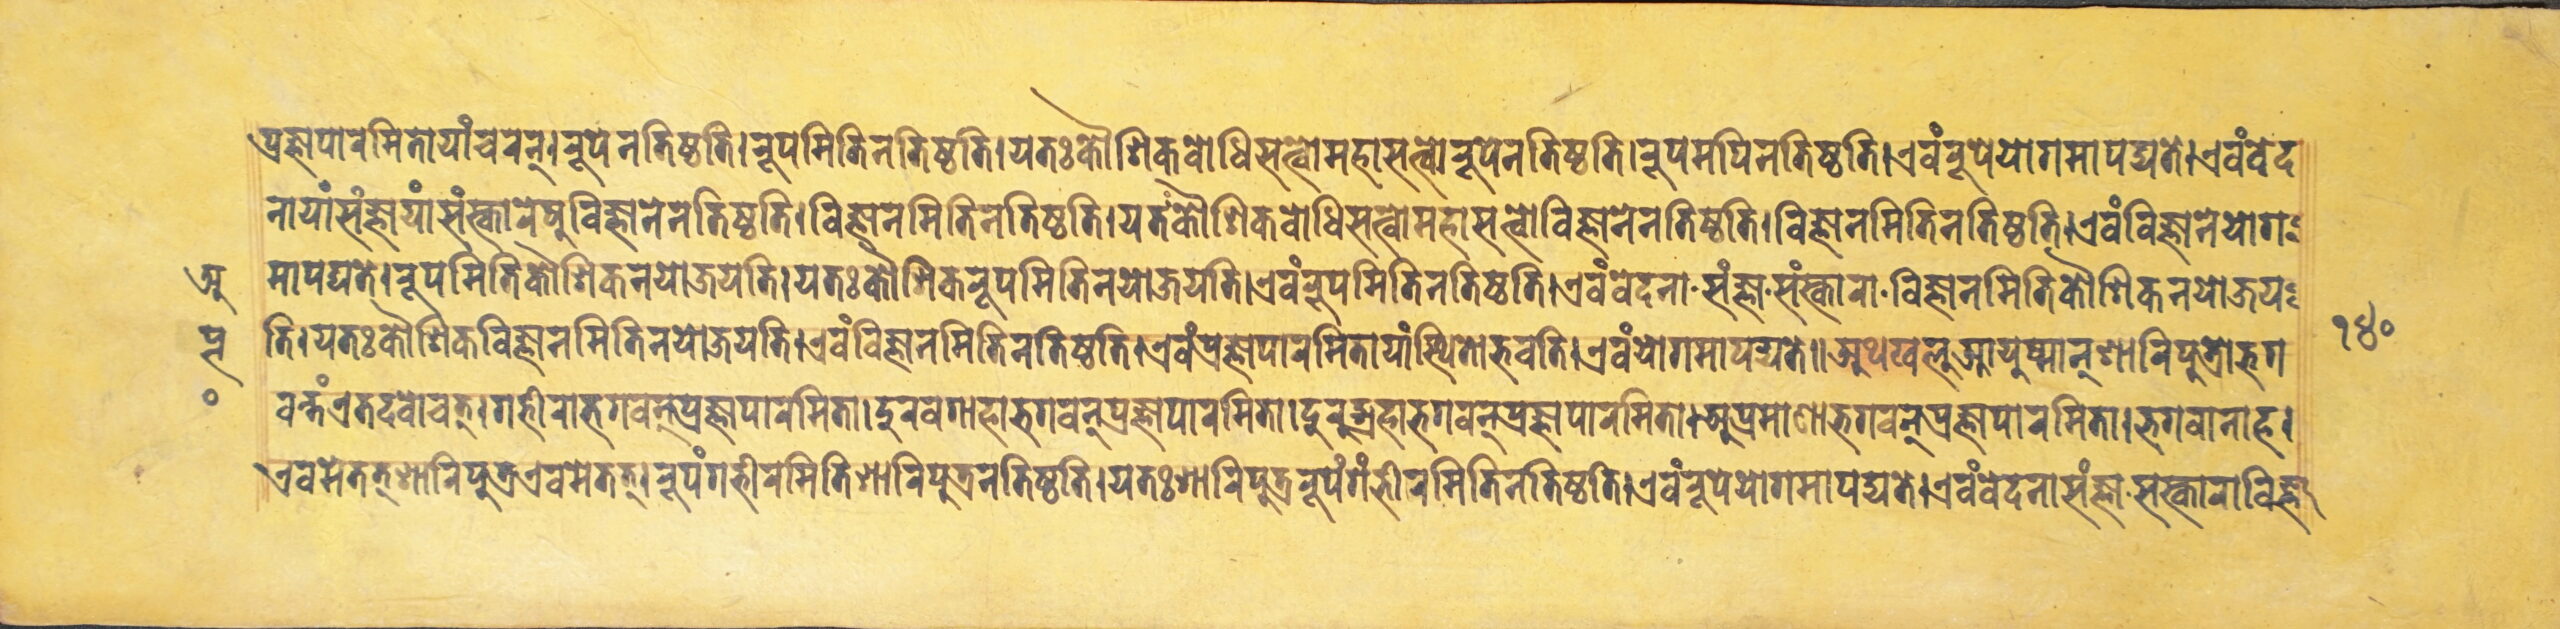 प्रज्ञापारमितायांचरन्।रूपेनतिष्ठति।रूपमितिनतिष्ठति।यतःकौशिकवोधिसत्वोमहासत्वोरूपेनतिष्ठति।रूपमपिनतिष्ठति।एवंरूपेयोगमापद्यते।एवंवेद
नायांसंज्ञायांसंस्कारेषुविज्ञानेनतिष्ठति।विज्ञानमितिनतिष्ठति।यतंकौशिकवोधिसत्वोमहासत्वोविज्ञानेनतिष्ठति।विज्ञानमितिनतिष्ठति।एवंविज्ञानेयोग
मापद्यते।रूपमितिकौशिकनयोजयति।यतःकौशिकरूपमितिनयोजयति।एवंरूपमितिनतिष्ठति।एवंवेदना·संज्ञा·संस्कारा·विज्ञानमितिकौशिकनयोजय
ति।यतःकौशिकविज्ञानमितिनयोजयति।एवंविज्ञानमितिनतिष्ठति।एवंप्रज्ञापारमितायांस्थितोभवति।एवंयोगमापद्यते॥अथखलुआयुष्मान्शारिपुत्रोभग
वन्तंएतदवोचत्।गम्भीराभगवन्प्रज्ञापारमिता।दुरवगाहाभगवन्प्रज्ञापारमिता।दुरुद्ग्रहाभगवन्प्रज्ञापारमिता।अप्रमाणाभगवन्प्रज्ञापारमिता।भगवानाह।
एवमेतत्शारिपुत्रएवमेतत्।रूपंगम्भीरमितिशारिपुत्रनतिष्ठति।यतःशारिपुत्ररूपंगंभीरमितिनतिष्ठति।एवंरूपेयोगमापद्यते।एवंवेदनासंज्ञा·सस्काराविज्ञा
अ
१४०